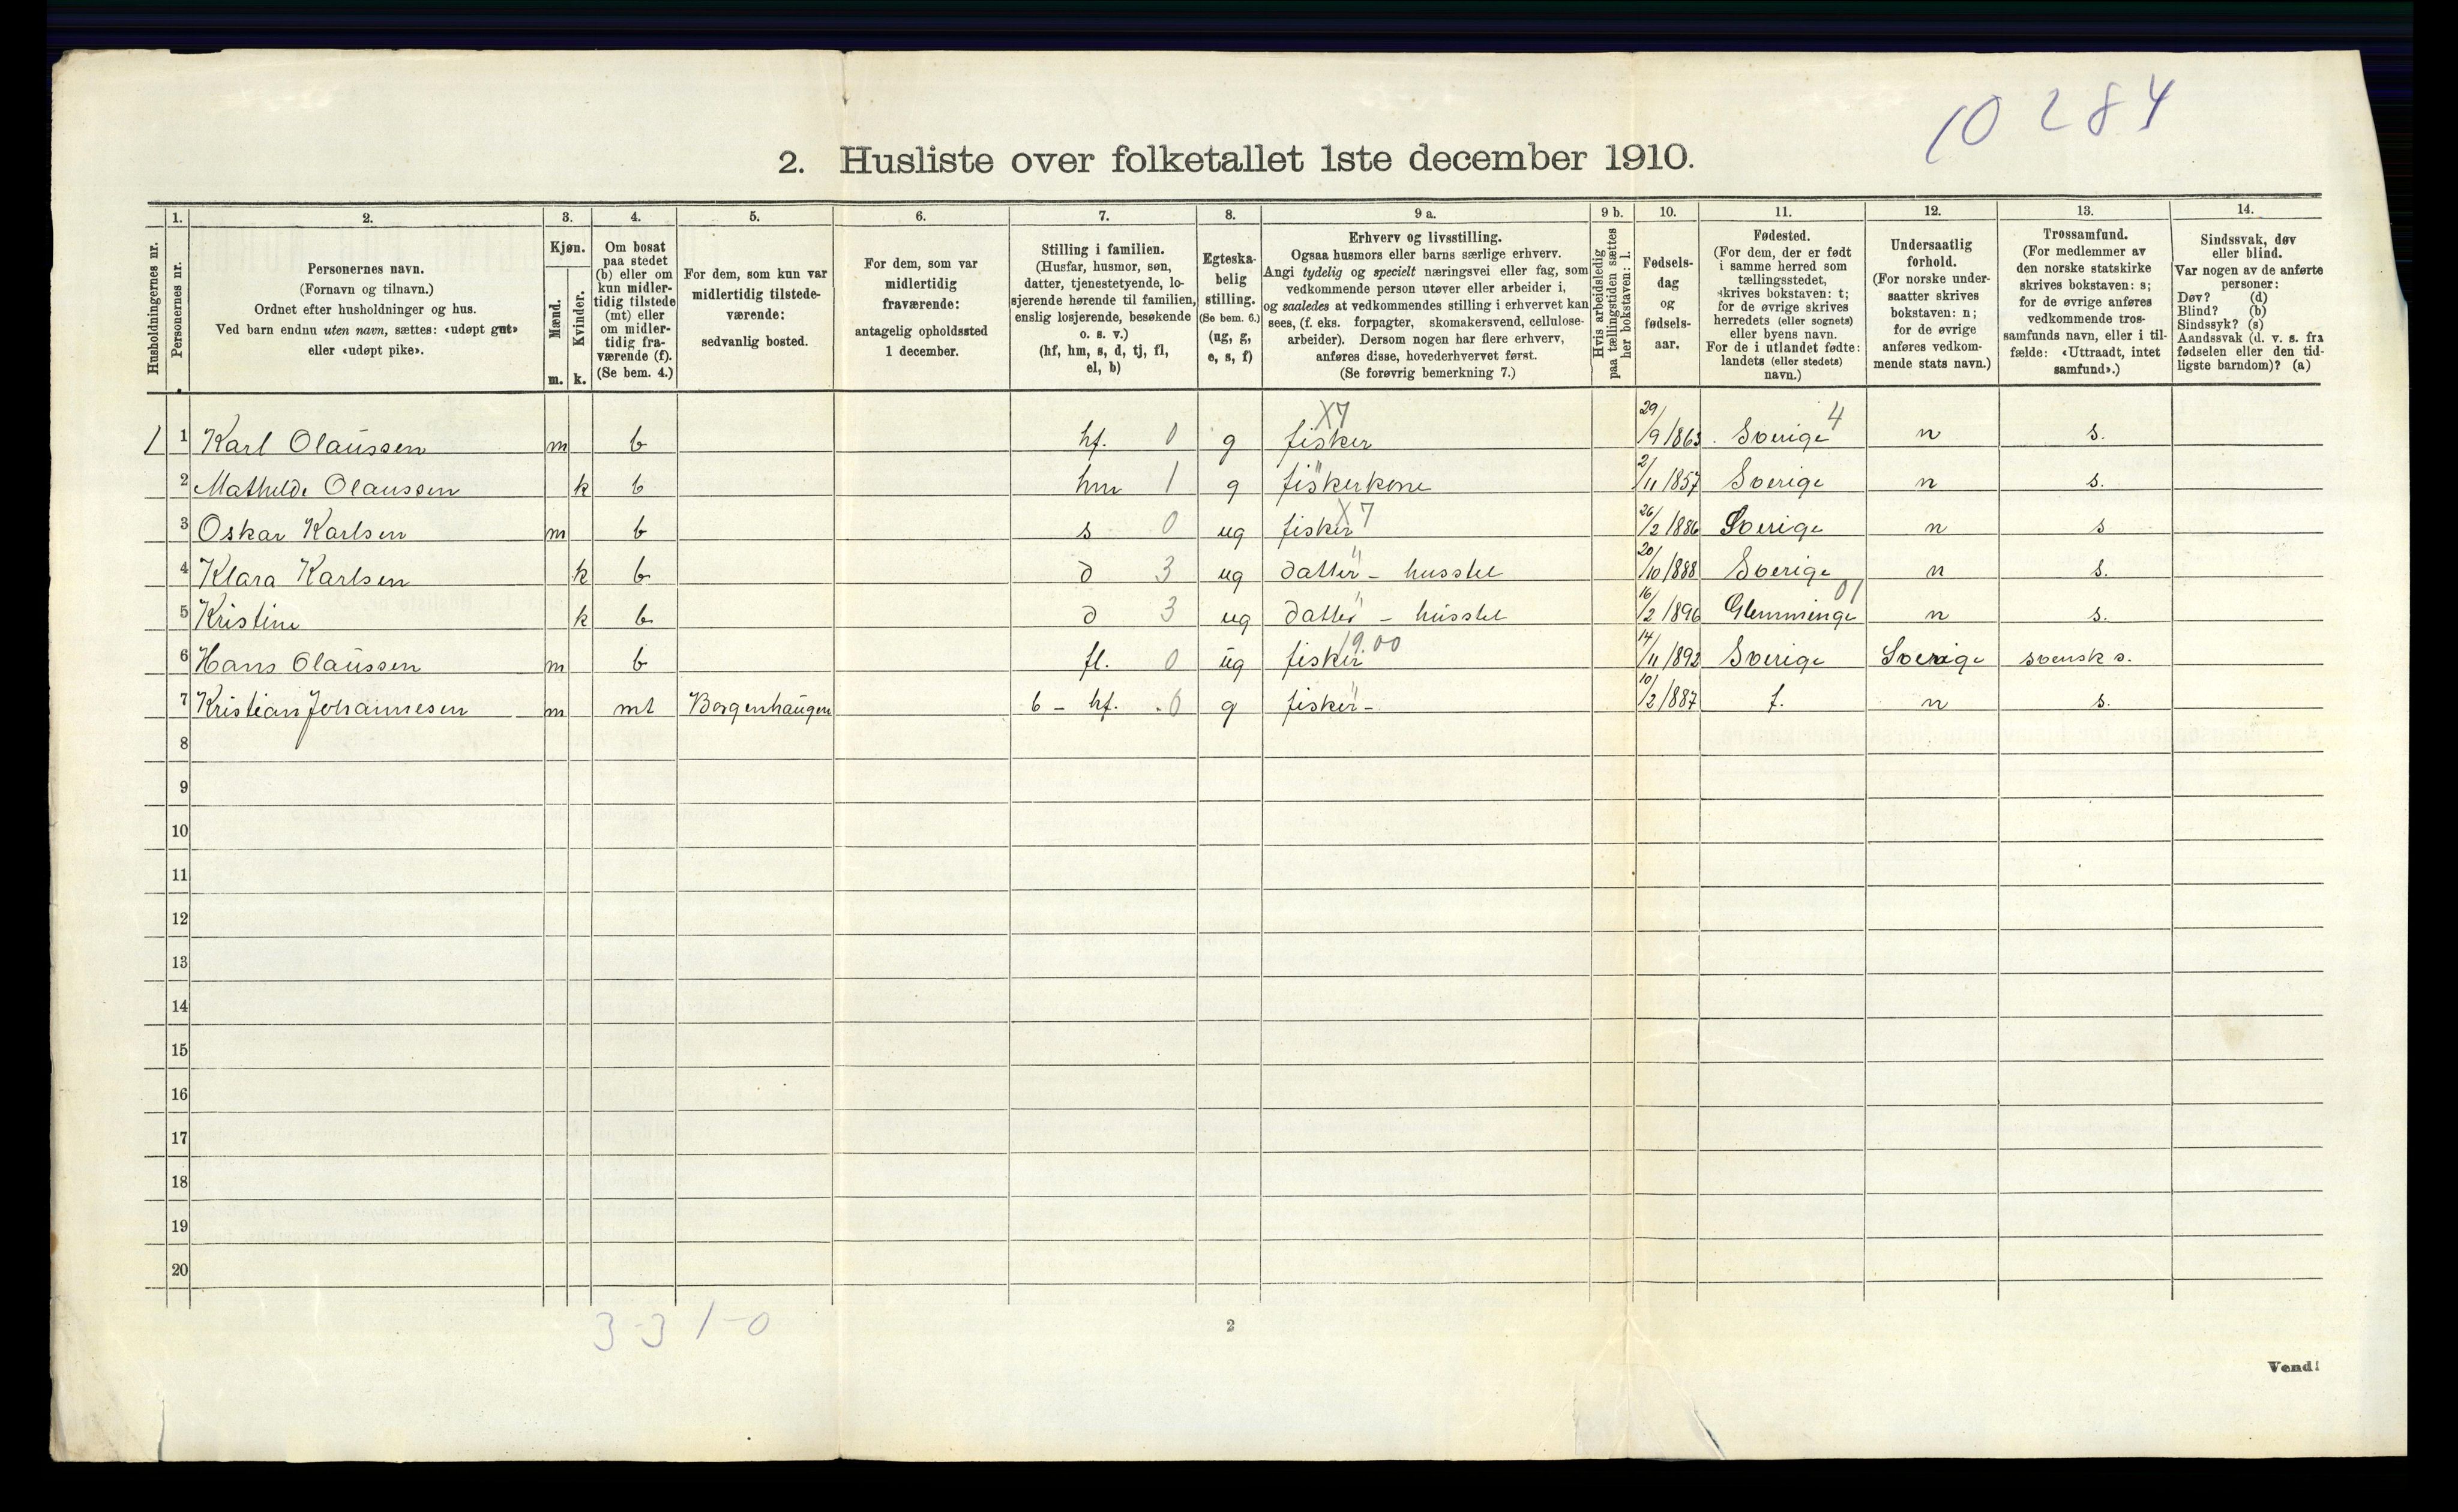 10 284
2. Husliste over folketallet 1ste december 1910.
1. 2. 3. 4. 5. 6. 7. 8. 9 a. 9 b. 10. 11. 12. 13. 14.
Husholdningernes nr.
Personernes nr.
Personernes navn.
(Fornavn og tilnavn.)
Ordnet efter husholdninger og hus.
Ved barn endnu uten navn, sættes: «udøpt gut»
eller «udøpt pike».
Kjøn.
Mænd.
Kvinder.
m. k.
Om bosat
paa stedet
(b) eller om
kun midler-
tidig tilstede
(mt) eller
om midler-
tidig fra-
værende (f).
(Se bem. 4.)
For dem, som kun var
midlertidig tilstede-
værende:
sedvanlig bosted.
For dem, som var
midlertidig
fraværende:
antagelig opholdssted
1 december.
Stilling i familien.
(Husfar, husmor, søn,
datter, tjenestetyende, lo-
sjerende hørende til familien,
enslig losjerende, besøkende
o. s. v.)
(hf, hm, s, d, tj, fl,
el, b)
Egteska-
belig
stilling.
(Se bem. 6.)
(ug, g,
e, s, f)
Erhverv og livsstilling.
Ogsaa husmors eller barns særlige erhverv.
Angi tydelig og specielt næringsvei eller fag, som
vedkommende person utøver eller arbeider i,
og saaledes at vedkommendes stilling i erhvervet kan
sees, (f. eks. forpagter, skomakersvend, cellulose-
arbeider). Dersom nogen har flere erhverv,
anføres disse, hovederhvervet først.
(Se forøvrig bemerkning 7.)
Hvis arbeidsledig
paa tællingstiden sættes
her bokstaven: l.
Fødsels-
dag
og
fødsels-
aar.
Fødested.
(For dem, der er født
i samme herred som
tællingsstedet,
skrives bokstaven: t;
for de øvrige skrives
herredets (eller sognets)
eller byens navn.
For de i utlandet fødte:
landets (eller stedets)
navn.)
Undersaatlig
forhold.
(For norske under-
saatter skrives
bokstaven: n;
for de øvrige
anføres vedkom-
mende stats navn.)
Trossamfund.
(For medlemmer av
den norske statskirke
skrives bokstaven: s;
for de øvrige anføres
vedkommende tros-
samfunds navn, eller i til-
fælde: «Uttraadt, intet
samfund».)
Sindssvak, døv
eller blind.
Var nogen av de anførte
personer:
Døv? (d)
Blind? (b)
Sindssyk? (s)
Aandssvak (d. v. s. fra
fødselen eller den tid-
ligste barndom)? (a)
X7 4
1 1 Karl Olaussen m b hf. 0 g fisker 29/9 1863 Sverige n s.
2 Mathilde Olaussen k b hm 1 g fiskerkone 2/11 1857 Sverige n s.
3 Oskar Karlsen m b s 0 ug fisker X7 26/2 1886 Sverige n s
4 Klara Karlsen k b d 3 ug datter - husstel 20/10 1888 Sverige n s.
5 Kristine k b d 3 ug datter - husstel 16/2 1896 Glemminge 01 n s.
6 Hans Olaussen m b fl. 0 ug fisker 19.00 14/11 1892 Sverige Sverige svensk s.
7 Kristian Johannesen m mt Borgenhaugen b - hf. 0 g fisker - 10/2 1887 t. n s.
8
9
10
11
12
13
14
15
16
17
18
19
20
3-3 1-0
2
Vend!